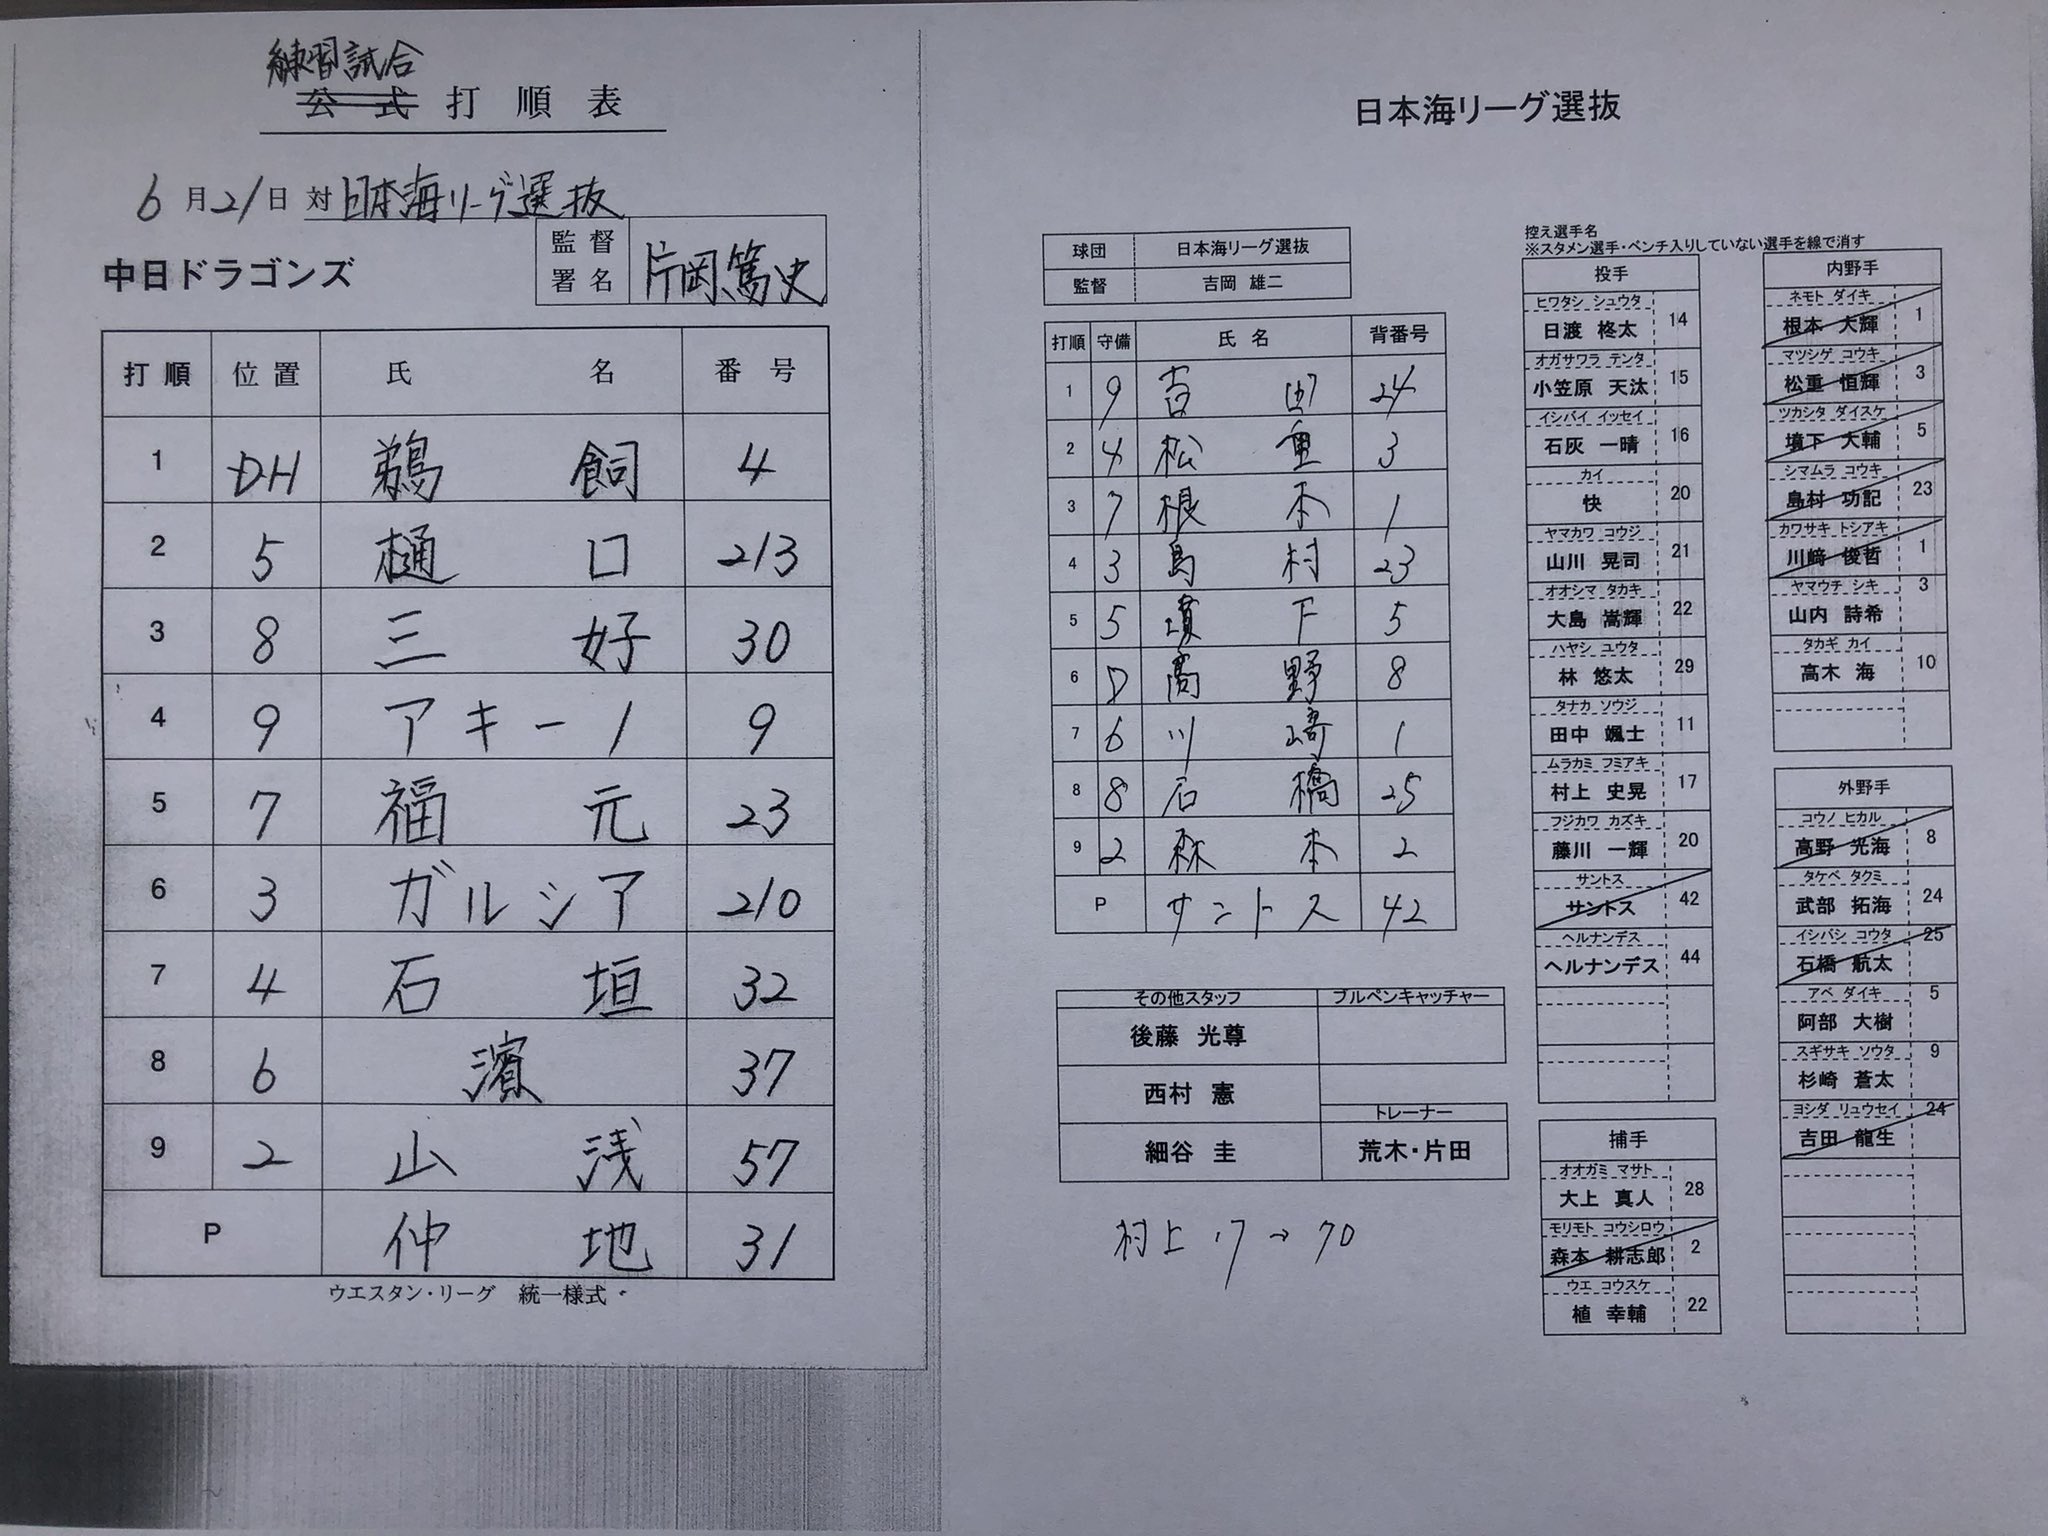 練習試合
公式打順表
6月21日 対 日本海リーグ選抜
中日ドラゴンズ
監督署名 片岡篤史
打順 位置 氏名 番号
1 DH 鵜飼 4
2 5 樋口 213
3 8 三好 30
4 9 アキーノ 9
5 7 福元 23
6 3 ガルシア 210
7 4 石垣 32
8 6 濱 37
9 2 山浅 57
P 仲地 31
ウエスタン・リーグ 統一様式
日本海リーグ選抜
球団 日本海リーグ選抜
監督 吉岡 雄二
打順 守備 氏名 背番号
1 9 吉田 24
2 4 松重 3
3 7 根本 1
4 3 島村 23
5 5 墳下 5
6 D 髙野 8
7 6 川﨑 1
8 8 石橋 25
9 2 森本 2
P サントス 42
その他スタッフ ブルペンキャッチャー
後藤 光尊
西村 憲
トレーナー
細谷 圭 荒木・片田
村上 17→70
控え選手名
※スタメン選手・ベンチ入りしていない選手を線で消す
投手
ヒワタシ シュウタ
日渡 柊太 14
オガサワラ テンタ
小笠原 天汰 15
イシバイ イッセイ
石灰 一晴 16
カイ
快 20
ヤマカワ コウジ
山川 晃司 21
オオシマ タカキ
大島 嵩輝 22
ハヤシ ユウタ
林 悠太 29
タナカ ソウジ
田中 颯士 11
ムラカミ フミアキ
村上 史晃 17
フジカワ カズキ
藤川 一輝 20
サントス
サントス 42
ヘルナンデス
ヘルナンデス 44
捕手
オオガミ マサト
大上 真人 28
モリモト コウシロウ
森本 耕志郎 2
ウエ コウスケ
植 幸輔 22
内野手
ネモト ダイキ
根本 大輝 1
マツシゲ コウキ
松重 恒輝 3
ツカシタ ダイスケ
墳下 大輔 5
シマムラ コウキ
島村 功記 23
カワサキ トシアキ
川﨑 俊哲 1
ヤマウチ シキ
山内 詩希 3
タカギ カイ
高木 海 10
外野手
コウノ ヒカル
高野 光海 8
タケベ タクミ
武部 拓海 24
イシバシ コウタ
石橋 航太 25
アベ ダイキ
阿部 大樹 5
スギサキ ソウタ
杉崎 蒼太 9
ヨシダ リュウセイ
吉田 龍生 24